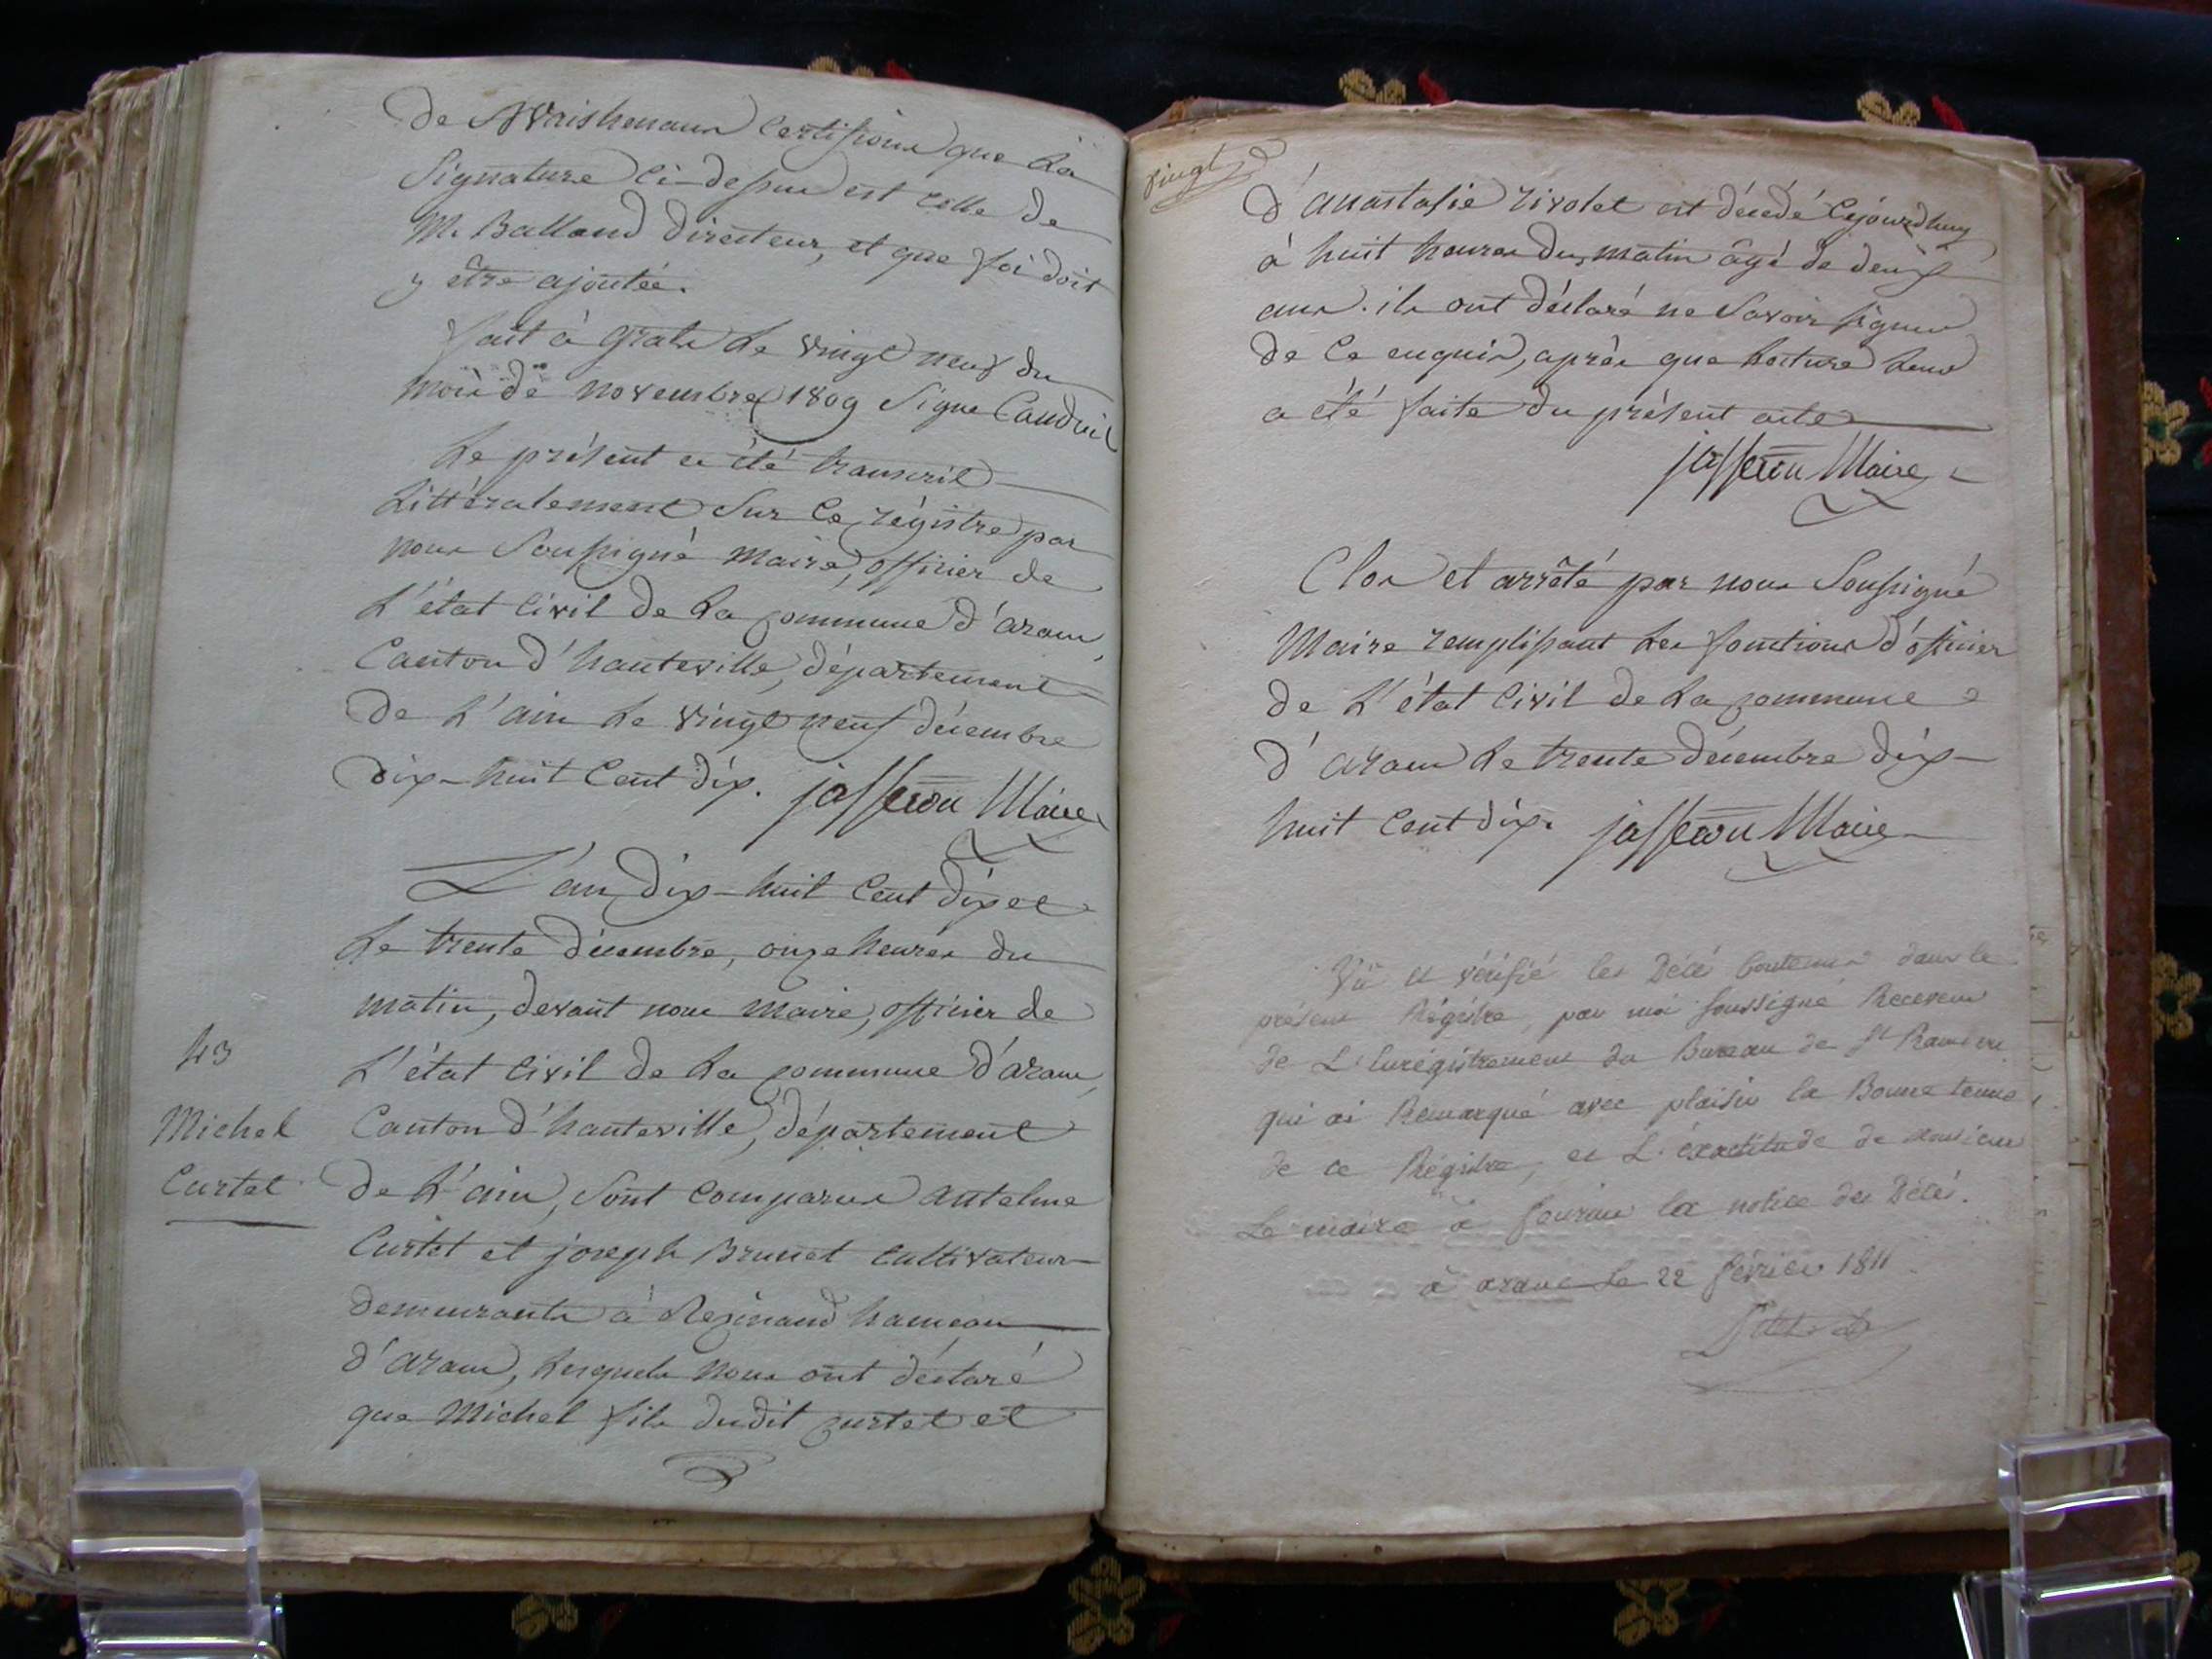 certifions que la
Signature ci-dessus est celle de
M. Balland Directeur, et que foi doit
y être ajoutée.
fait à Gratz le vingt neuf du
mois de novembre 1809 Signé
Le présent a été transcrit
Littéralement Sur ce régistre par
nous Soussigné Maire, officier de
L'état Civil de La commune d'aranc,
Canton d'hauteville, département
de L'ain Le vingt neuf décembre
dix-huit Cent dix. jasseron Maire
L'an dix-huit Cent dix et
Le trente décembre, onze heures du
matin, devant nous maire, officier de
43
L'état Civil de La commune d'aranc,
Michel
Canton d'hauteville, département
Curtet
de L'ain, Sont Comparus antelme
Curtet et joseph Brunet cultivateurs
demeurants à Resinand hameau
d'aranc, Lesquels nous ont déclaré
que Michel fils dudit curtet et
vingt
d'anastasie rivolet est décédé cejourdhuy
à huit heures du matin âgé de deux
ans. ils ont déclaré ne Savoir signer
de ce enquis, après que Lecture Leur
a été faite du présent acte
jasseron Maire
Clos et arrêté par nous Soussigné
Maire remplissant Les fonctions d'officier
de L'état Civil de La commune
d'aranc Le trente décembre dix-
huit Cent dix. jasseron Maire
Vû et vérifié les Décès Contenus dans le
présent Régistre, par moi soussigné Receveur
de L'Enrégistrement du Bureau de St Rambert
qui ai Remarqué avec plaisir la Bonne tenue
de ce Régistre, et L'éxactitude de monsieur
Le maire à fournir la notice des Décès.
à aranc le 22 février 1811